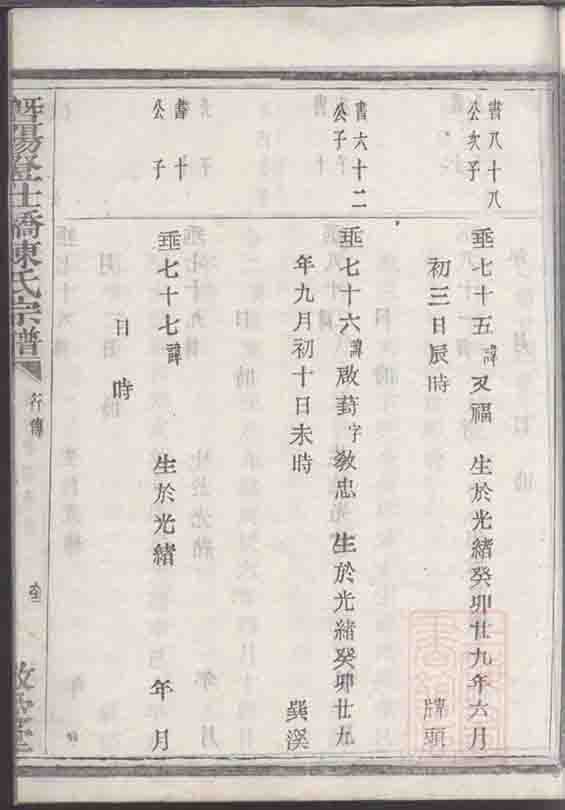 書八十八
公次子
垂七十五諱又福 生於光緒癸卯廿九年六月
初三日辰時 牌頭
書六十二
公子
垂七十六諱啟葑字教忠 生於光緒癸卯廿九
年九月初十日未時 巽溪
書十
公子
垂七十七諱 生於光緒 年 月
日 時
暨陽登仕橋陳氏宗譜
行傳